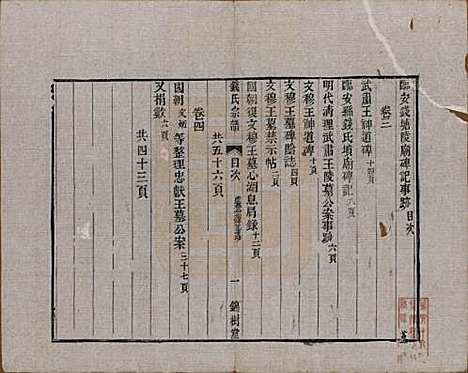 臨安錢塘陵廟碑記事跡目次
卷三
武肅王神道碑十四頁
臨安縣錢氏墳廟碑記八頁
明代清理武肅王陵墓公案事跡六頁
文穆王神道碑十頁
文穆王墓碑陰誌
文穆王墓禁示帖二頁
國朝復文穆王墓心湖息局錄十二頁
錢氏宗譜
目次
一
錦樹堂
共五十六頁
卷四
國朝文穆等整理忠獻王墓公案三十七頁
又捐數六頁
共四十三頁